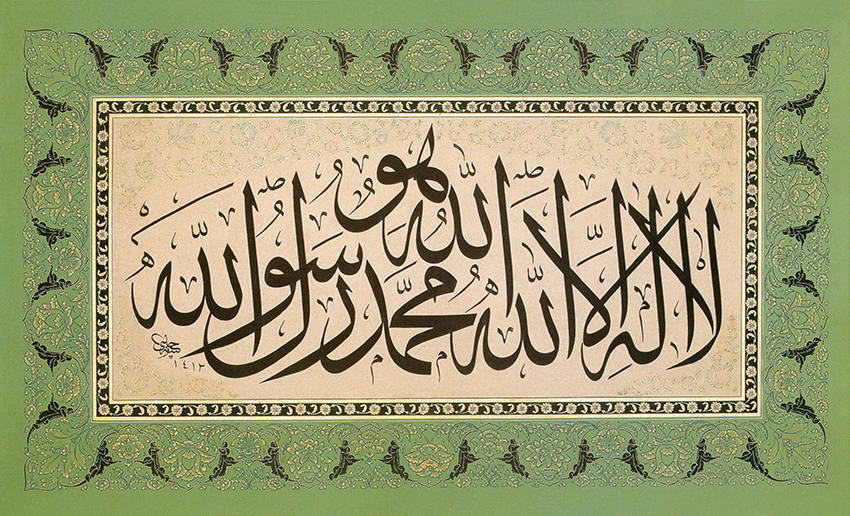 لا اله الا الله الله هو محمد رسول الله
١٤١٢